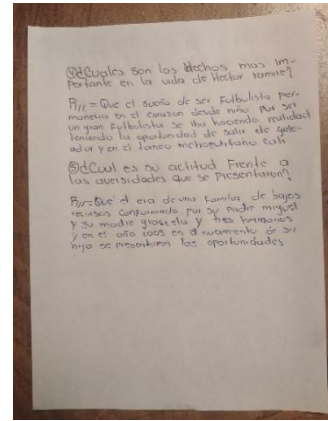 ④¿Cuales son los Hechos mas im-
portante en la vida de Hector ramire?
R//= Que el sueño de ser Futbolista per-
manecia en el corazon desde niño por ser
un gran Futbolista se iba haciendo realidad
teniendo la oportunidad de salir de gole-
ador y en el torneo metropolitano cali
⑤¿Cual es su actitud Frente a
las aversidades que se presentaron?
R//= Que el era de una familia de bajos
recursos conformando por su padre miguel
y su madre y tres hermanos
y en el año en el nacimiento de su
hijo se presentaron las oportunidades